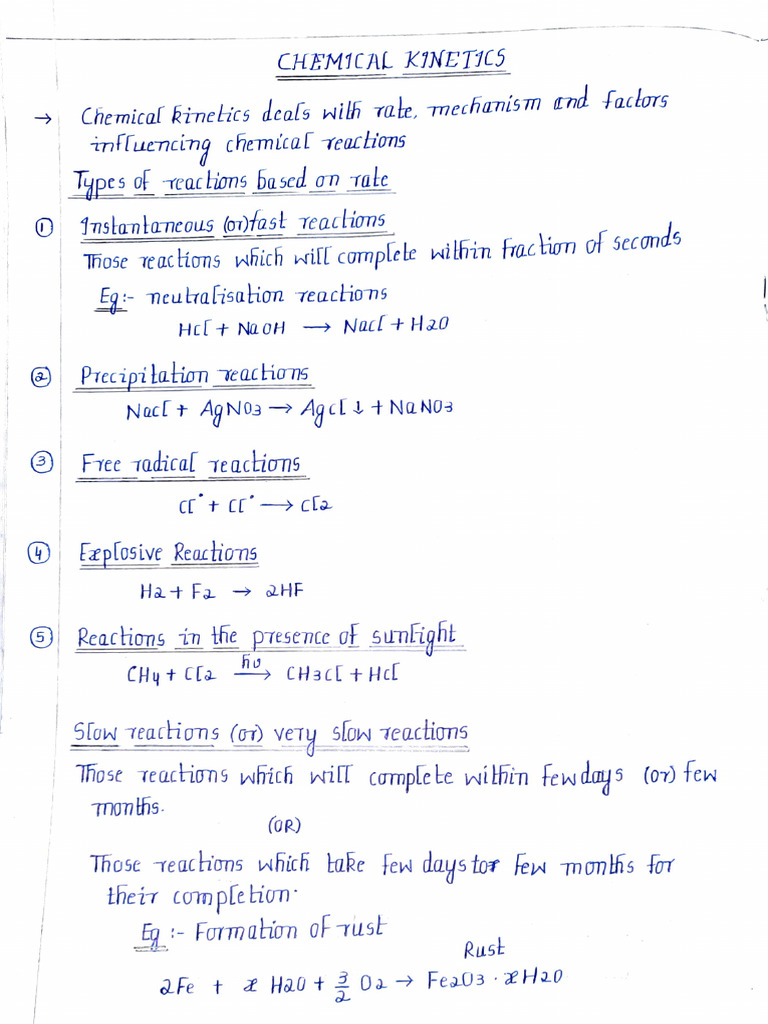 CHEMICAL KINETICS
→ Chemical kinetics deals with rate, mechanism and factors
influencing chemical reactions
Types of reactions based on rate
① Instantaneous (or) fast reactions
Those reactions which will complete within fraction of seconds
Eg:- neutralisation reactions
HCl + NaOH → NaCl + H2O
② Precipitation reactions
NaCl + AgNO3 → AgCl ↓ + NaNO3
③ Free radical reactions
Cl• + Cl• → Cl2
④ Explosive Reactions
H2 + F2 → 2HF
⑤ Reactions in the presence of sunlight
hυ
CH4 + Cl2 → CH3Cl + HCl
Slow reactions (or) very slow reactions
Those reactions which will complete within few days (or) few
months.
(OR)
Those reactions which take few days tor few months for
their completion.
Eg :- Formation of rust
Rust
2Fe + x H2O + 3/2 O2 → Fe2O3 · xH2O